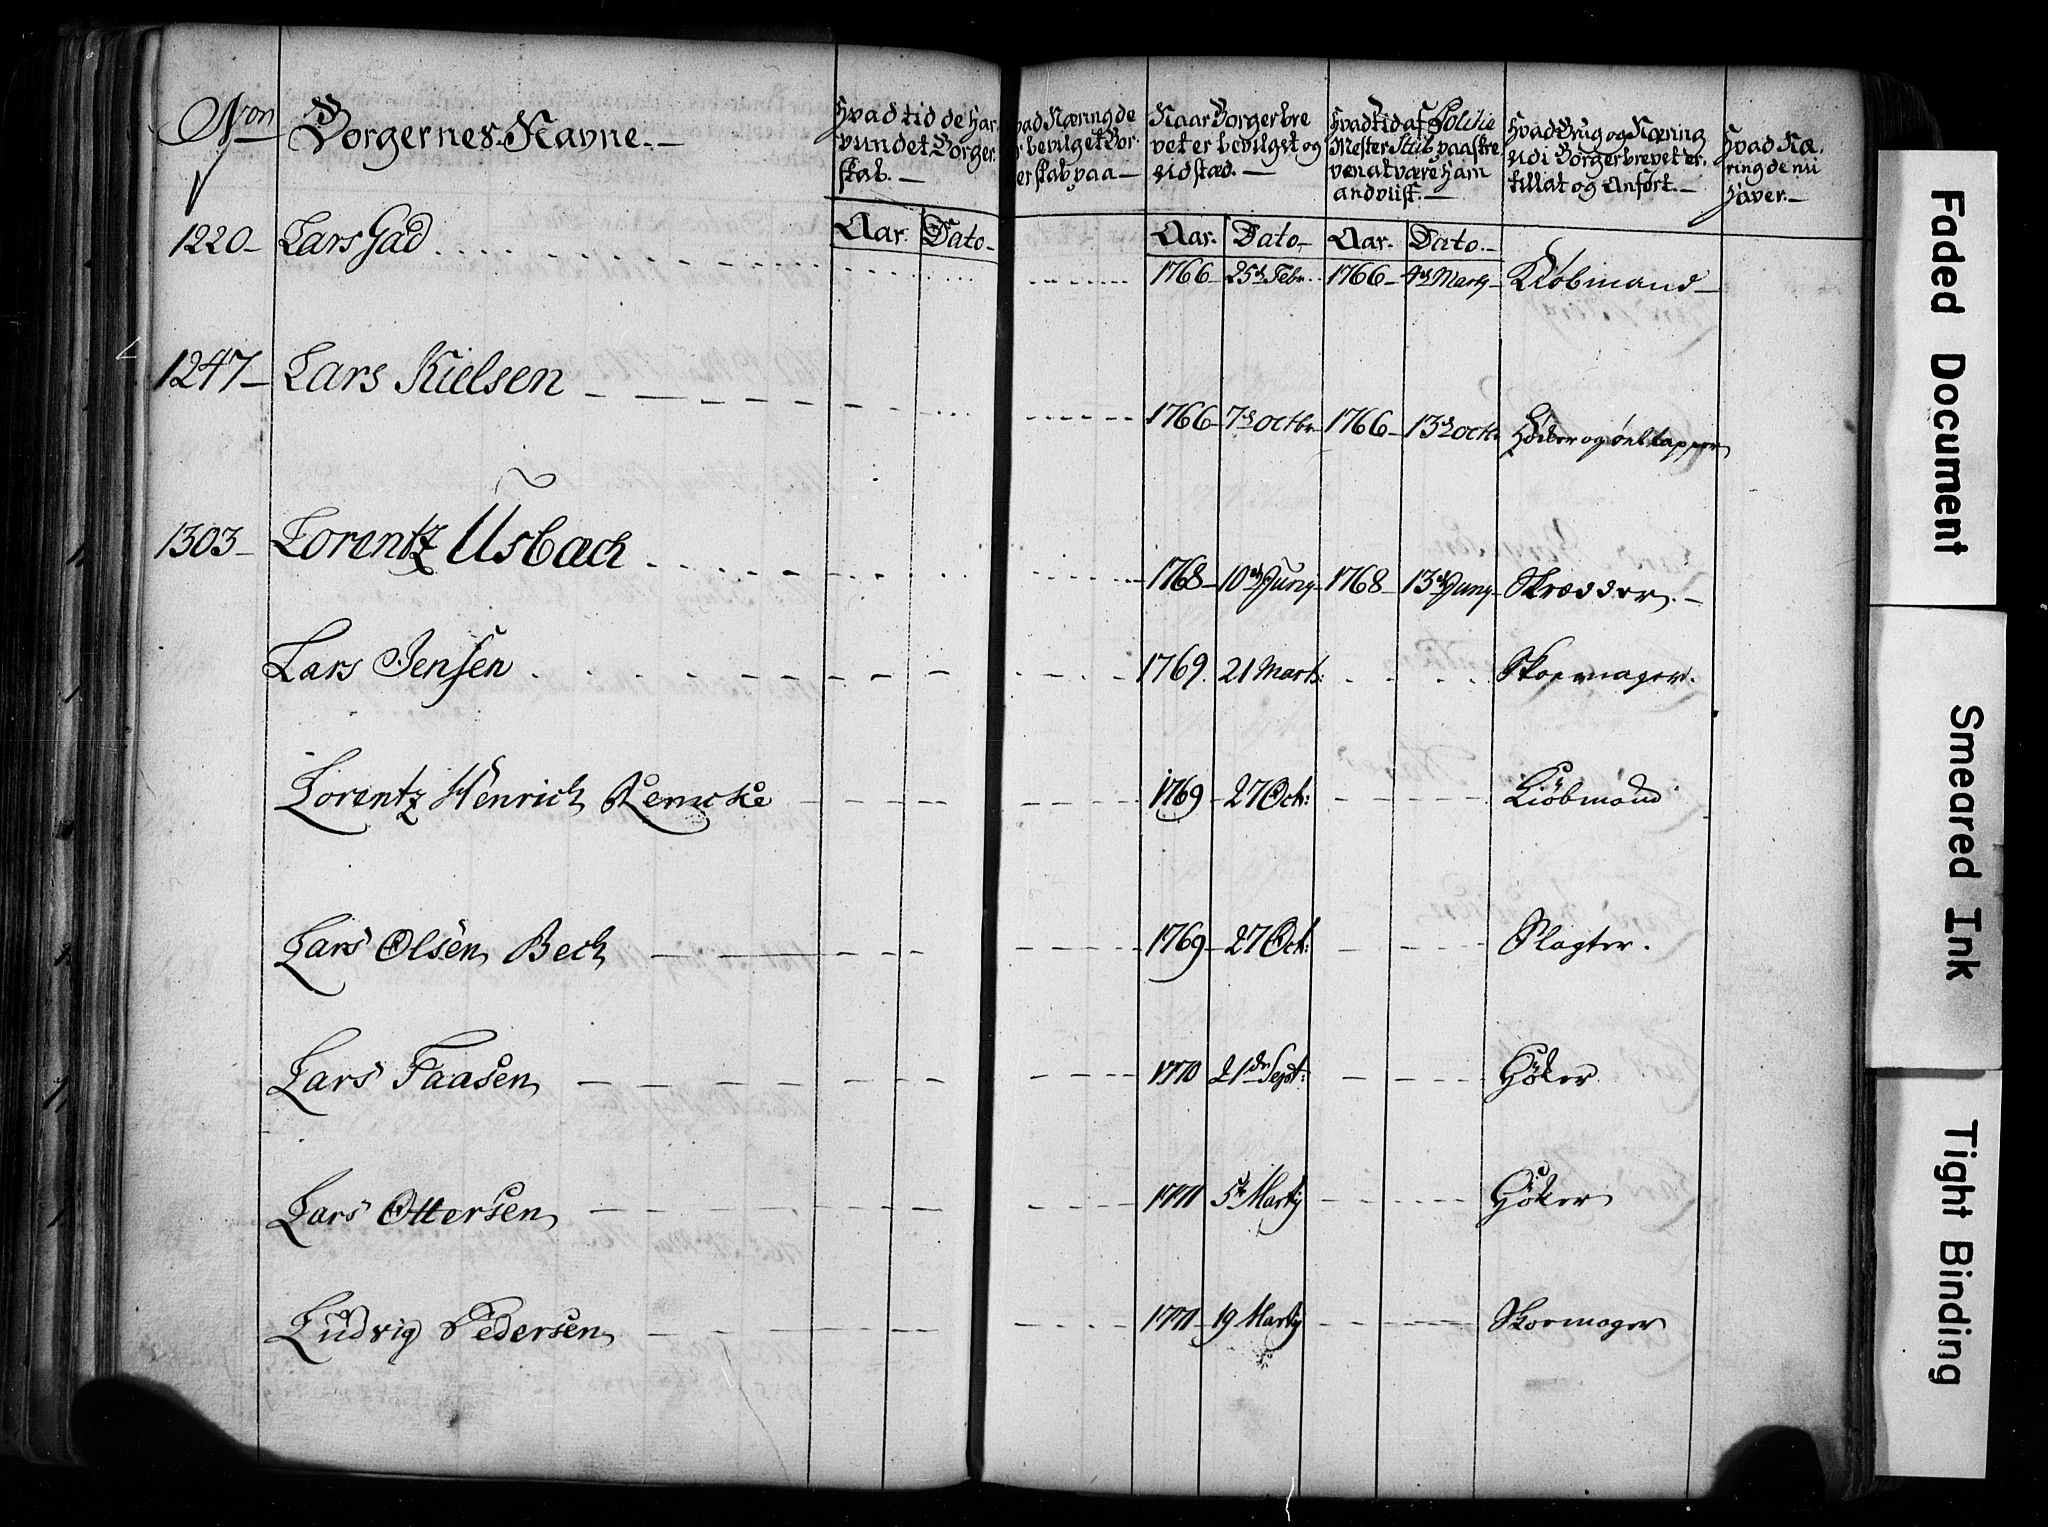 Non Borgernes Navne.
Hvad tid de har
vundet Borger
skab.
Hvad Næring de
er bevilget Bor-
gerskab paa
Naar Borgerbre
vet er bevilget og
udstæd.
Hvad tid af Politie
Mester Skib paaskre
ven at være ham
andvist.
Hvad Brug og Næring
udi Borgerbrevet er
tillat og Anført.
Hvad Næ-
ring de nu
Haver.
Aar. Dato Aar. Dato Aar. Dato.
1220 Lars Gad 1766 25de Febr. 1766 4de Marty Kiøbmand
1247 Lars Nielsen 1766 7de Octbr 1766 13de Octbr Høker og øltapper
1303 Lorentz Usbach 1768 10de Juny 1768 13de Juny Skrædder.
Lars Jensen 1769. 21 Marts: Skoemager.
Lorentz Henrich Remcke 1769 27 Oct: Kiøbmand
Lars Olsen Bech 1769 27 Oct: Slagter.
Lars Faasen 1770 21de Sept: Høker
Lars Ottersen 1771 5te Martij Høker
Ludvig Pedersen 1771 19 Martij Skoemager
Faded Document
Smeared Ink
Tight Binding